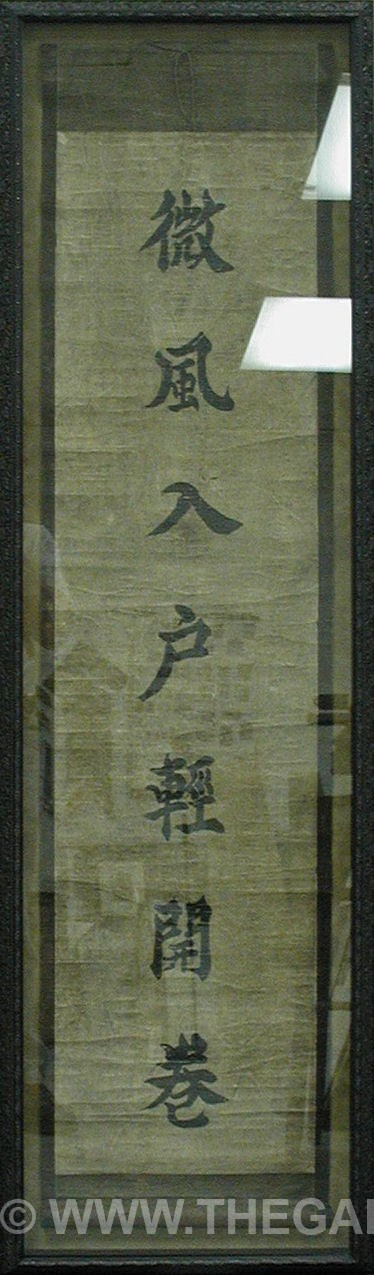 微風入户輕開卷
© WWW.THEGAL